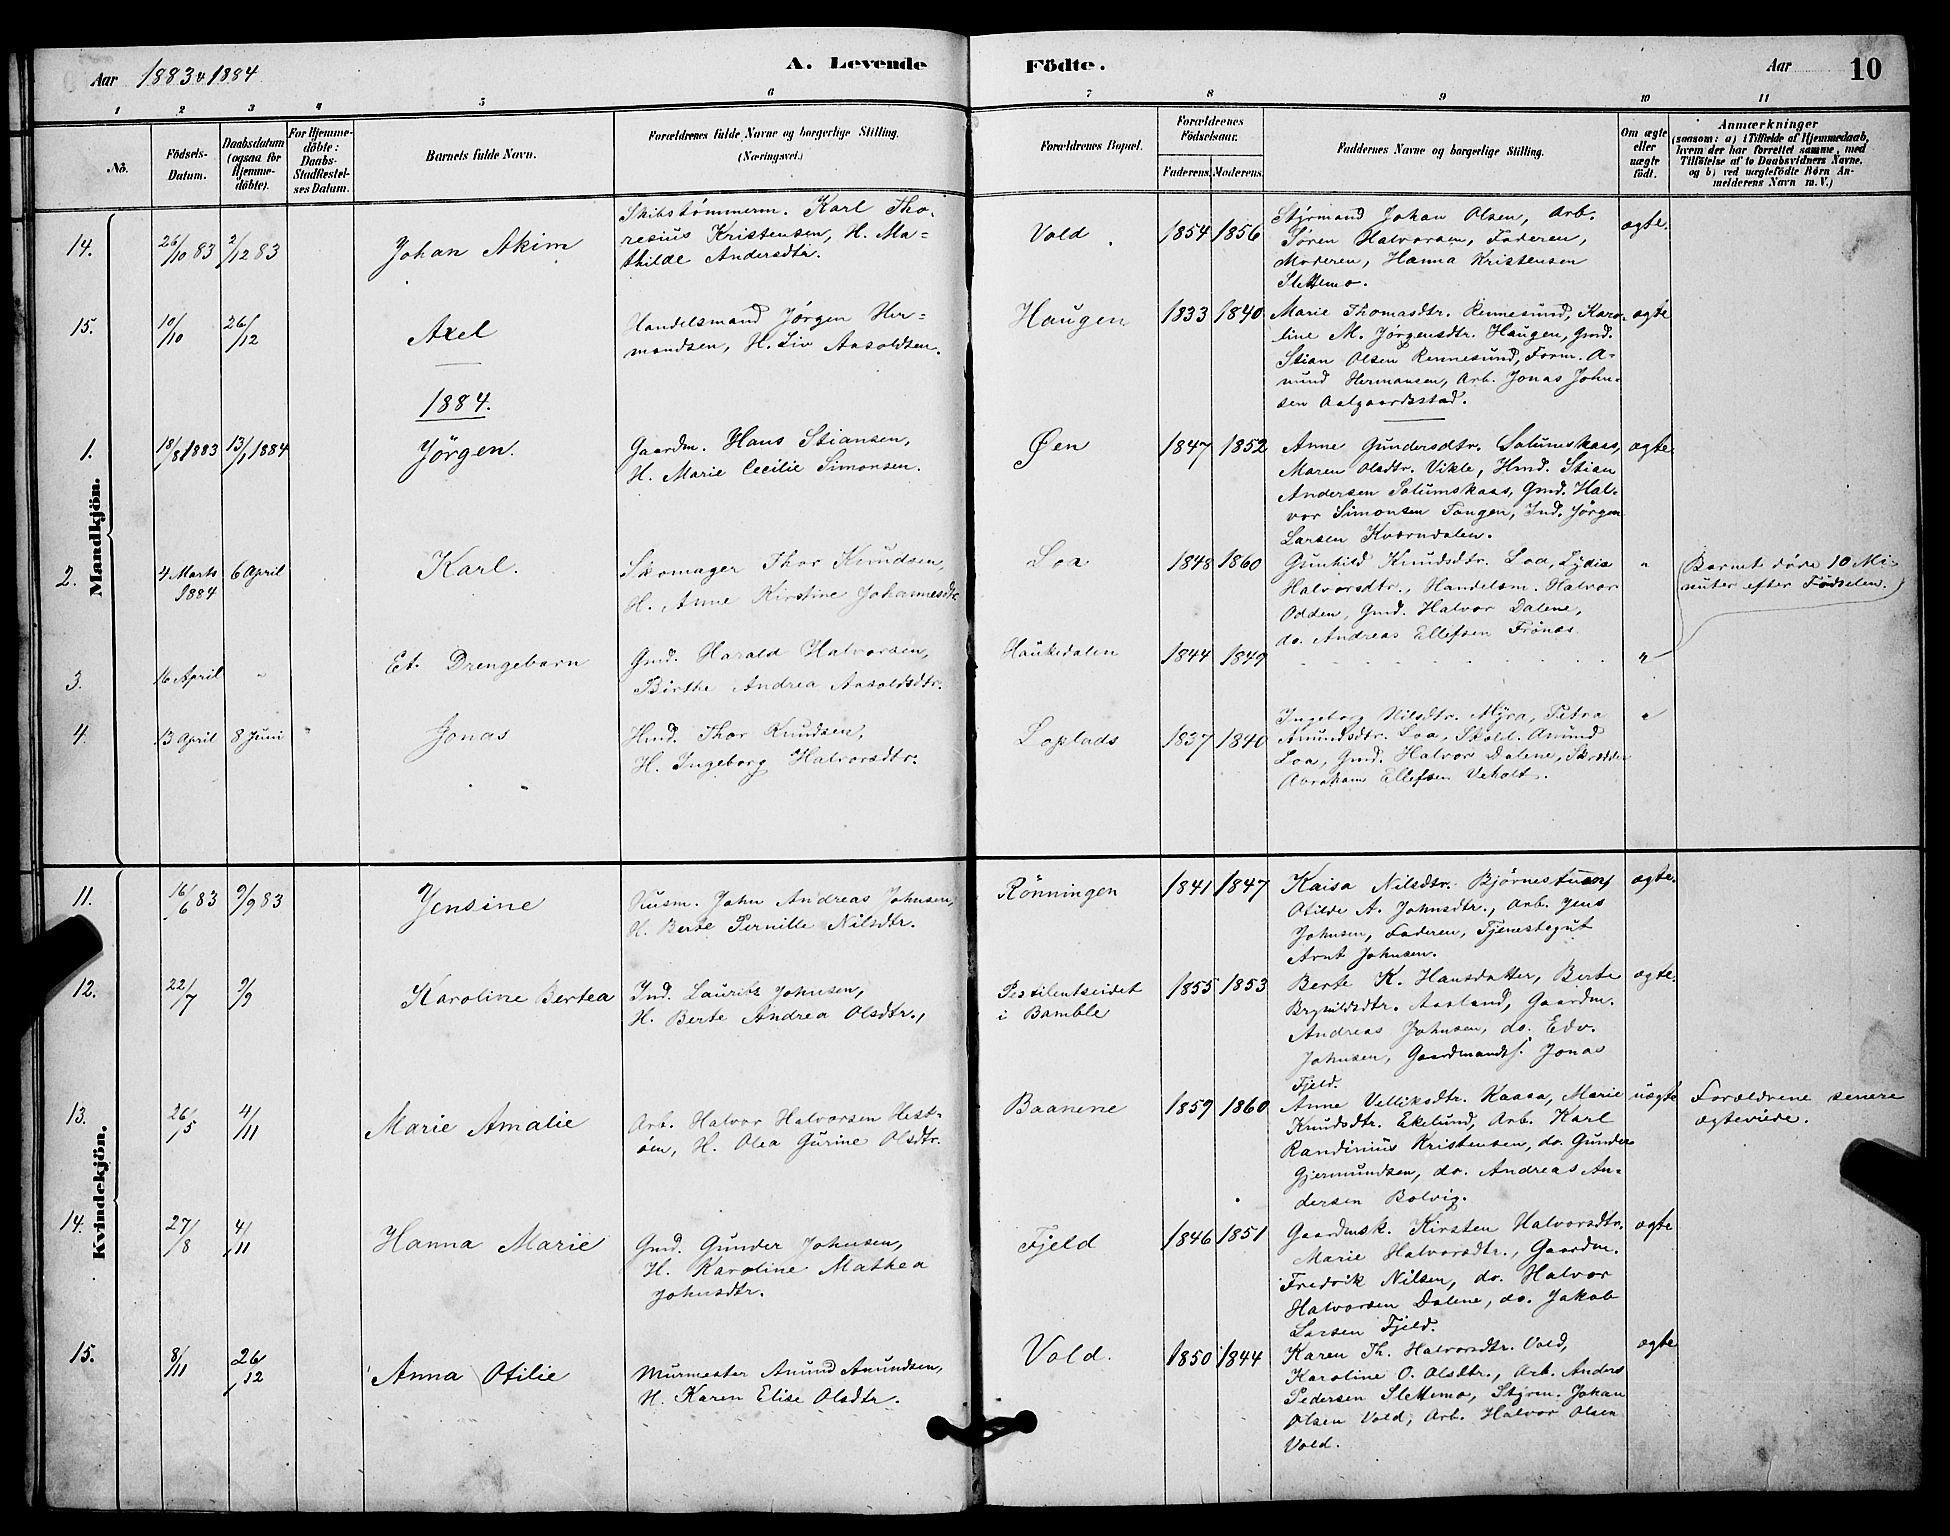 Aar 1883 & 1884
A. Levende Födte.
Aar
10
1 2 3 4 5 6 7 8 9 10 11
No.
Födsels-
Datum.
Daabsdatum
(ogsaa for
Hjemme-
döbte).
For Hjemme-
döbte:
Daabs-
Stadfæstel-
ses Datum.
Barnets fulde Navn.
Forældrenes fulde Navne og borgerlige Stilling.
(Næringsvei.)
Forældrenes Bopæl.
Forældrenes
Födselsaar.
Faderens. Moderens.
Faddernes Navne og borgerlige Stilling.
Om ægte
eller
uægte
født.
Anmærkninger
(saasom: a) i Tilfælde af Hjemmedaab,
hvem der har forrettet samme, med
Tilföielse af to Daabsvidners Navne.
og b) ved uægtefödte Börn An-
melderens Navn m.V.)
Mandkjön.
14.
26/10 83
2/12 83
Johan Akim
Skibstømmerm. Karl Tho-
resius Kristensen, H. Ma-
thilde Andersdtr.
Vold
1854 1856
Styrmand Johan Olsen, Arb.
Søren Halvorsen, Faderen,
Moderen, Hanna Kristensen
Slettemo.
ægte.
15.
10/10
26/12
Axel
Handelsmand Jørgen Her-
mandsen, H. Liv Aasoldsen.
Haugen
1833 1840
Marie Thomasdtr. Rennesund, Karo-
line M. Jørgensdtr. Haugen, Gmd.
Stian Olsen Rennesund, Form. A-
mund Hermansen, Arb. Jonas John-
sen Aalgaardsstad.
ægte
1884.
1.
18/8 1883
13/1 1884
Jørgen.
Gaardm. Hans Stiansen,
H. Marie Cecilie Simonsen.
Øen
1847 1852
Anne Gundersdtr. Solumskaas,
Maren Olsdtr. Vikle, Hmd. Stian
Andersen Solumskaas, Gmd. Hal-
vor Simonsen Tangen, Ind. Jørgen
Larsen Kværndalen.
ægte.
2.
4 Marts
1884
6 April
Karl.
Skomager Thor Knudsen,
H. Anne Kirstine Johannesdtr
Loa
1848 1860
Gunhild Knudsdtr. Loa, Lydia
Halvorsdtr., Handelsm. Halvor
Odden, Gmd. Halvor Dalene,
do. Andreas Ellefsen Frönæs.
"
(Barnet døde 10 Mi-
nuter efter Fødselen.)
3.
16 April
"
Et Drengebarn
Gmd. Harald Halvorsen,
Birthe Andrea Aasoldsdtr.
Haukedalen
1844 1849
"
4.
13 April
8 Juni
"
Jonas
Hmd. Thor Knudsen,
H. Ingeborg Halvorsdtr.
Loplads
1837 1840
Ingeborg Nilsdtr. Myra, Petra
Amundsdtr. Loa, Skoll. Amund
Loa, Gmd. Halvor Dalene, Skrædder
Abraham Ellefsen Veholt.
"
Kvindekjön.
11.
16/6 83
9/9 83
Jensine
Husm. John Andreas Johnsen,
H. Berte Pernille Nilsdtr.
Rönningen
1841 1847
Kaisa Nilsdtr. Bjørnestuen,
Otilde A. Johnsdtr., Arb. Jens
Johnsen, Faderen, Tjenestegut
Arnt Johnsen.
ægte.
12.
22/7
9/9
Karoline Bertea
Ind. Lauritz Johnsen,
H. Berte Andrea Olsdtr.,
Pessilentseidet
i Bamble
1855 1853
Berte K. Hansdatter, Berte
Brynildsdtr. Aasland, Gaardm.
Andreas Johnsen, do. Edv.
Johnsen, Gaardmandss. Jonas
Fjeld.
ægte.
13.
26/5
4/11
Marie Amalie
Arb. Halvor Halvorsen Hest-
øen, H. Olea Gurine Olsdtr.
Baanene
1859 1860
Anne Velliksdtr. Kaasa, Marie
Knudsdtr. Ekelund, Arb. Karl
Randinius Kristensen, do. Gunder
Gjermundsen, do. Andreas An-
dersen Bolvig.
uægte
Forældrene senere
ægteviede.
14.
27/8
4/11
Hanna Marie
Gmd. Gunder Johnsen,
H. Karoline Mathea
Johnsdtr.
Fjeld
1846 1851
Gaardmsk. Kirsten Halvorsdtr.
Marie Halvorsdtr., Gaardm.
Fredrik Nilsen, do. Halvor
Halvorsen Dalene, do. Jakob
Larsen Fjeld.
ægte
15.
8/11
26/12
Anna Otilie
Murmester Amund Amundsen,
H. Karen Elise Olsdtr.
Vold.
1850 1844
Karen Th. Halvorsdtr. Vold,
Karoline O. Olsdtr., Arb. Anders
Pedersen Slettemo, Styrm. Johan
Olsen Vold, Arb. Halvor Olsen
Vold.
ægte